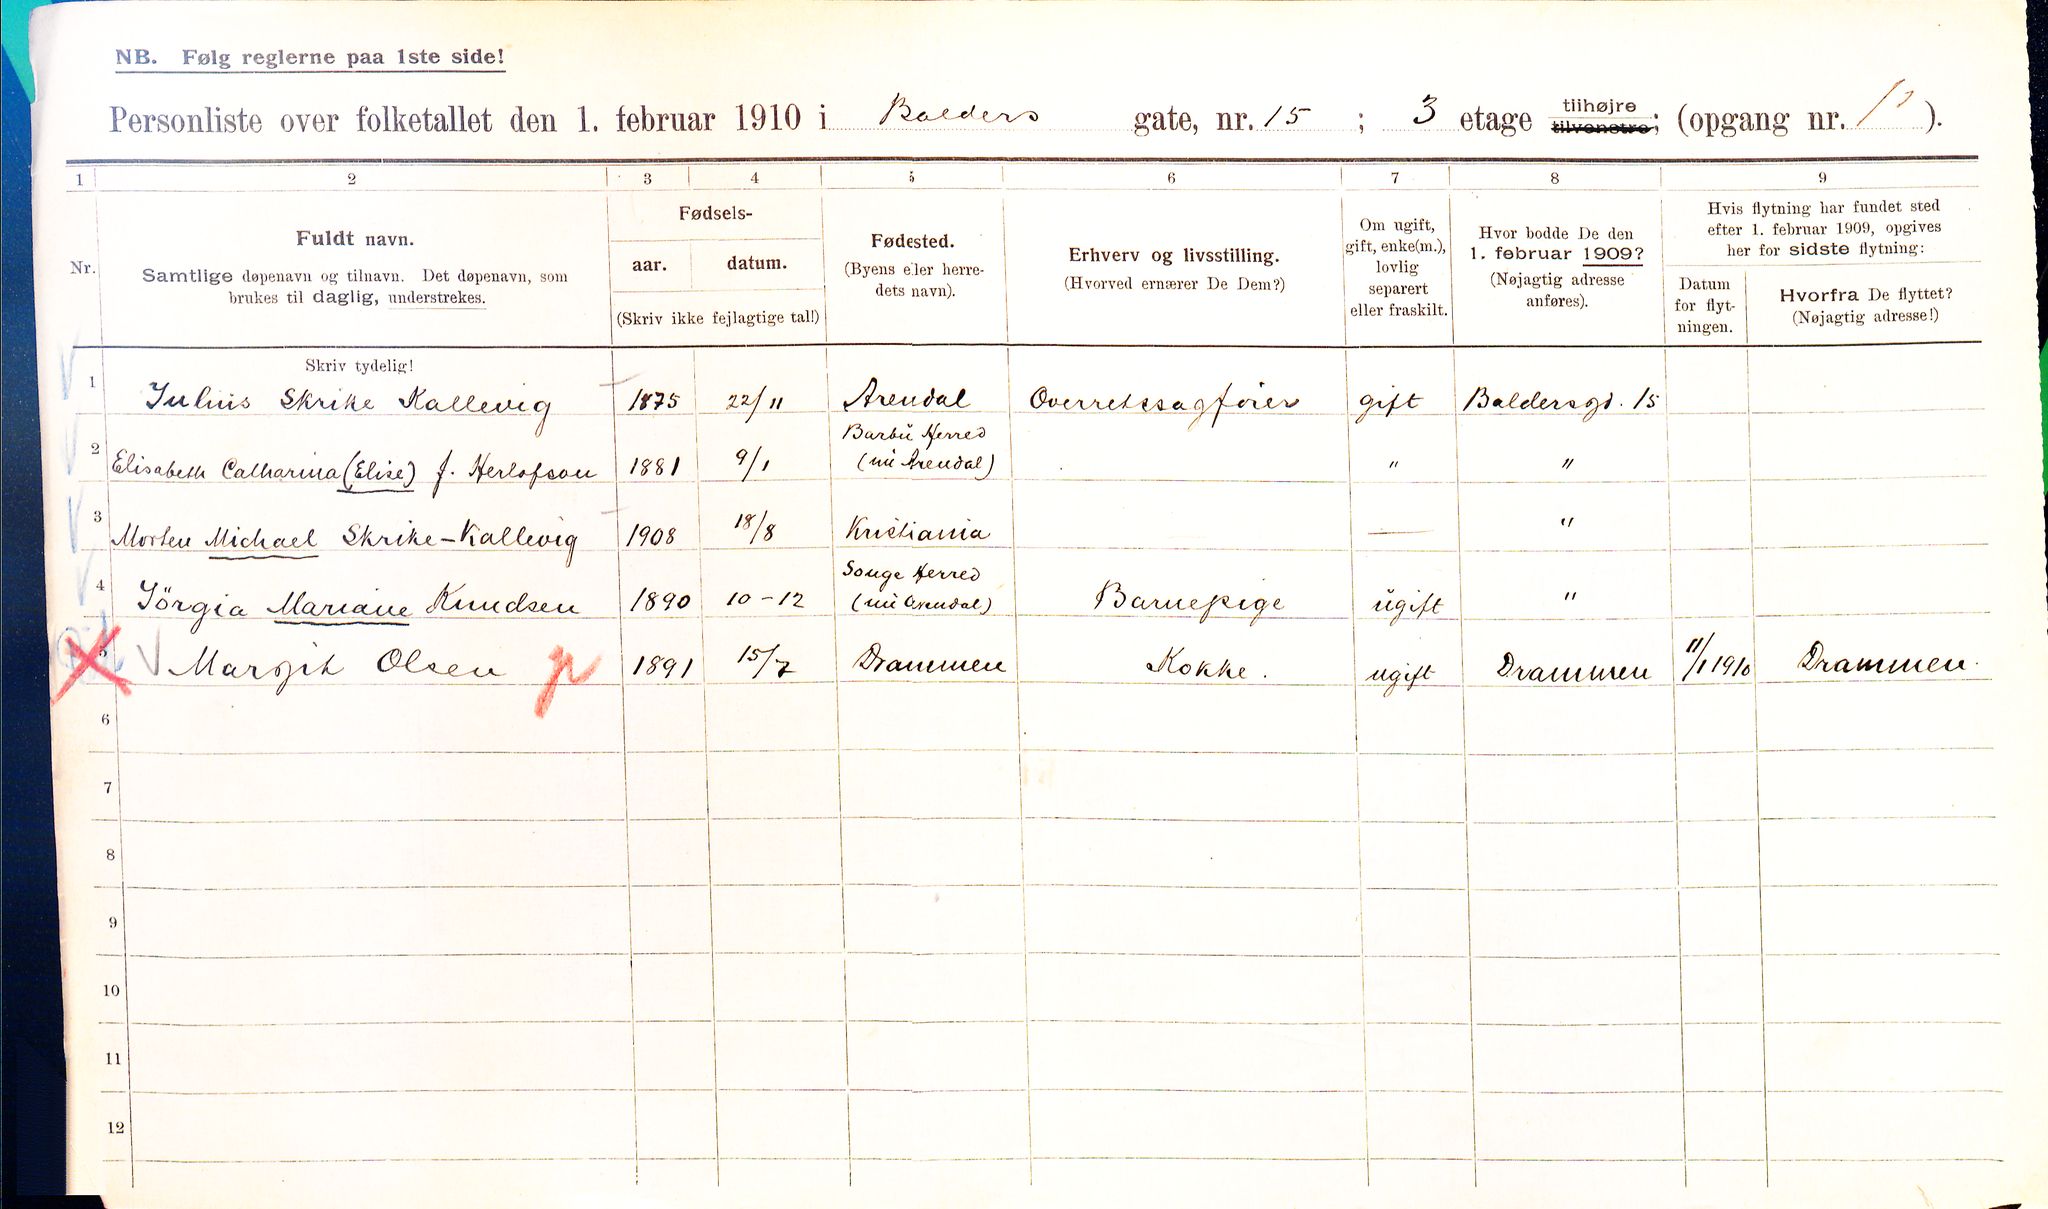 NB. Følg reglerne paa 1ste side!
Personliste over folketallet den 1. februar 1910 i Balders gate, nr. 15 ; 3 etage tilhøjre tilvenstre; (opgang nr. ).
1 2 3 4 5 6 7 8 9
Nr.
Fuldt navn.
Samtlige døpenavn og tilnavn. Det døpenavn, som
brukes til daglig, understrekes.
Fødsels-
aar. datum.
(Skriv ikke fejlagtige tal!)
Fødested.
(Byens eller herre-
dets navn).
Erhverv og livsstilling.
(Hvorved ernærer De Dem?)
Om ugift,
gift, enke(m.),
lovlig
separert
eller fraskilt.
Hvor bodde De den
1. februar 1909?
(Nøjagtig adresse
anføres).
Hvis flytning har fundet sted
efter 1. februar 1909, opgives
her for sidste flytning:
Datum
for flyt-
ningen.
Hvorfra De flyttet?
(Nøjagtig adresse!)
Skriv tydelig!
1 Julius Skrike Kallevig 1875 22/11 Arendal Overretssagfører gift Baldersgd. 15
2 Elisabeth Catharina (Elise) f. Herlofson 1881 9/1 Barbu Herred (nu Arendal) " "
3 Morten Michael Skrike-Kallevig 1908 18/8 Kristiania — "
4 Jörgia Mariane Knudsen 1890 10-12 Songe Herred (nu Arendal) Barnepige ugift "
5 Margit Olsen 1891 15/7 Drammen Kokke. ugift Drammen 11/1 1910 Drammen.
6
7
8
9
10
11
12